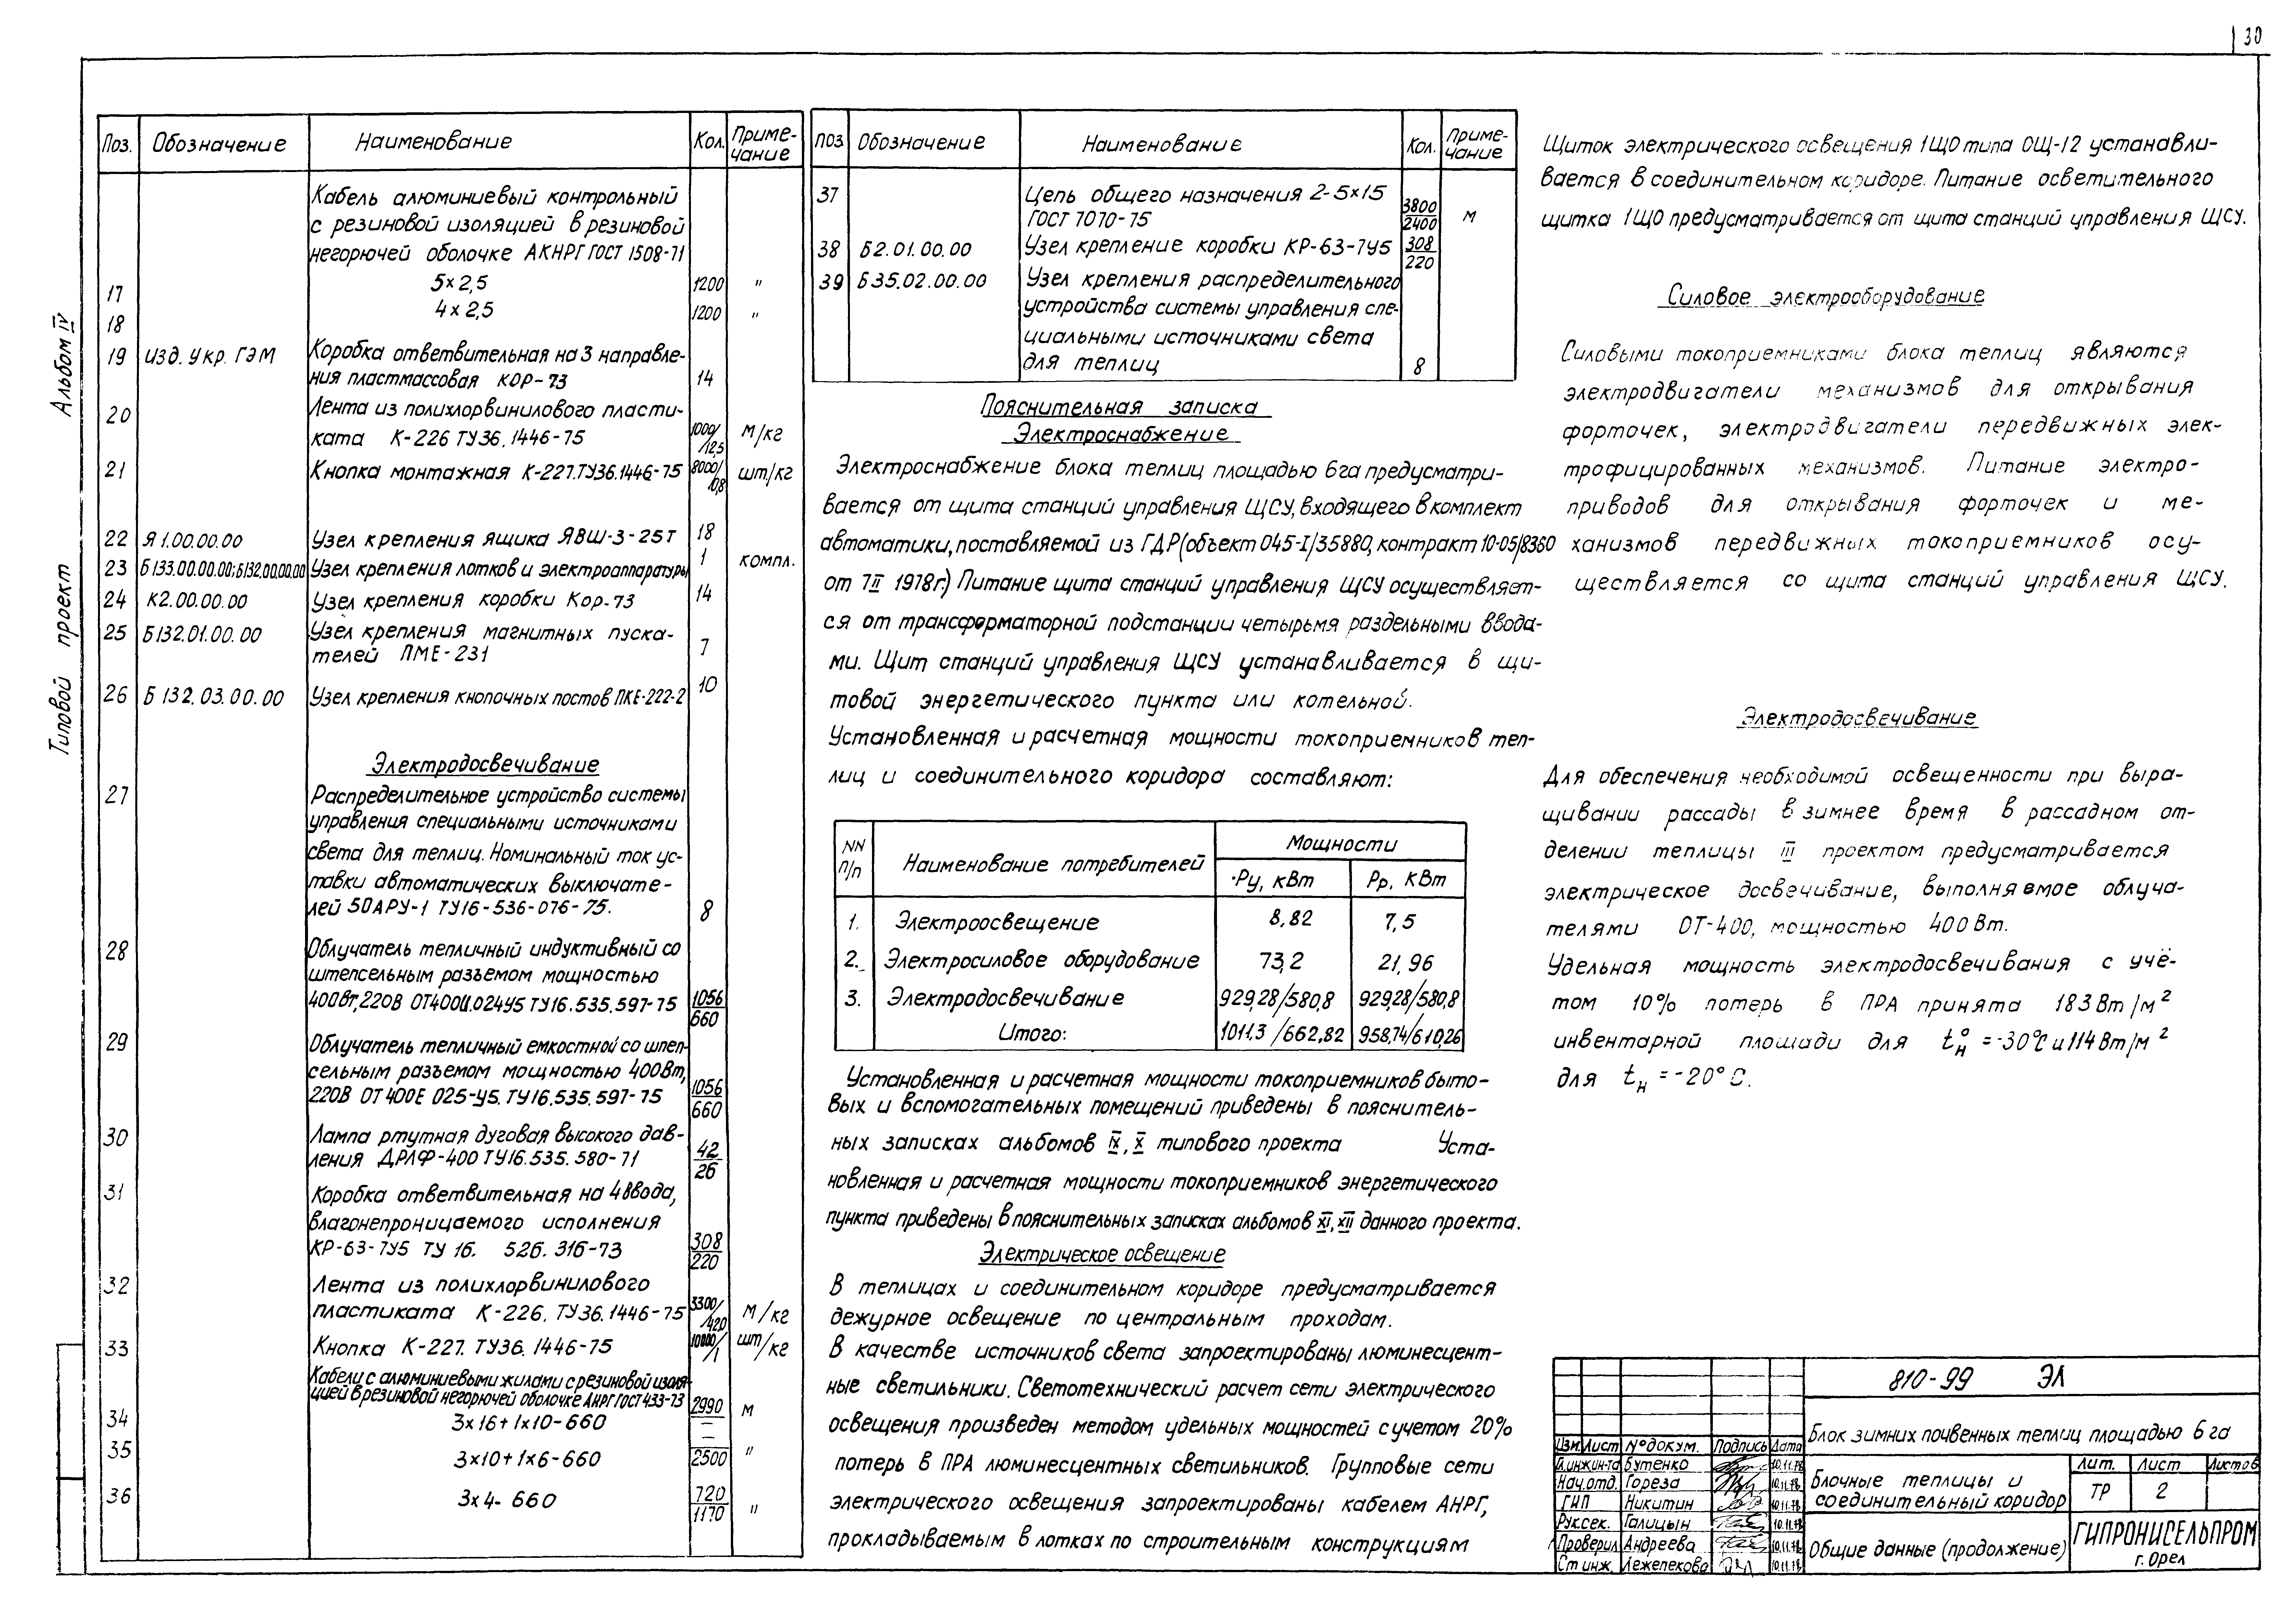 30
Альбом IV
Типовой проект
Поз. Обозначение Наименование Кол. Приме-
чание
Кабель алюминиевый контрольный
с резиновой изоляцией в резиновой
негорючей оболочке АКНРГ ГОСТ 1508-71
17 5×2,5 1200 "
18 4×2,5 1200 "
19 изд. Укр. ГЭМ Коробка ответвительная на 3 направле-
ния пластмассовая КОР-73 14
20 Лента из полихлорвинилового пласти-
ката К-226 ТУ36.1446-75 1000/12,5 м/кг
21 Кнопка монтажная К-227.ТУ36.1446-75 8000/10,8 шт/кг
22 Я1.00.00.00 Узел крепления ящика ЯВШ-3-25Т 18
23 Б133.00.00.00; Б132.00.00.00 Узел крепления лотков и электроаппаратуры 1 компл.
24 К2.00.00.00 Узел крепления коробки Кор-73 14
25 Б132.01.00.00 Узел крепления магнитных пуска-
телей ПМЕ-231 7
26 Б 132.03.00.00 Узел крепления кнопочных постов ПКЕ-222-2 10
Электродосвечивание
27 Распределительное устройство системы
управления специальными источниками
света для теплиц. Номинальный ток ус-
тавки автоматических выключате-
лей 50А РУ-1 ТУ16-536-076-75. 8
28 Облучатель тепличный индуктивный со
штепсельным разъемом мощностью
400Вт, 220В ОТ400И.024У5 ТУ16.535.597-75 1056/660
29 Облучатель тепличный емкостной со штеп-
сельным разъемом мощностью 400Вт,
220В ОТ400Е 025-У5. ТУ16.535.597-75 1056/660
30 Лампа ртутная дуговая высокого дав-
ления ДРЛФ-400 ТУ16.535.580-71 42/26
31 Коробка ответвительная на 4 ввода,
влагонепроницаемого исполнения
КР-63-7У5 ТУ 16. 526. 316-73 308/220
32 Лента из полихлорвинилового
пластиката К-226. ТУ36.1446-75 3300/420 м/кг
33 Кнопка К-227. ТУ36.1446-75 10000/1 шт/кг
Кабели с алюминиевыми жилами с резиновой изоля-
цией в резиновой негорючей оболочке АНРГ ГОСТ 433-73
34 3×16+1×10-660 2990/— м
35 3×10+1×6-660 —/2500 "
36 3×4-660 720/1170 "
поз Обозначение Наименование Кол. Приме-
чание
37 Цепь общего назначения 2-5×15
ГОСТ 7070-75 3800/2400 м
38 Б2.01.00.00 Узел крепление коробки КР-63-7У5 308/220
39 Б35.02.00.00 Узел крепления распределительного
устройства системы управления спе-
циальными источниками света
для теплиц 8
Пояснительная записка
Электроснабжение
Электроснабжение блока теплиц площадью 6га предусматри-
вается от щита станций управления ЩСУ, входящего в комплект
автоматики, поставляемой из ГДР (объект 045-I/35880, контракт 10-05/8360
от 7 II 1978г.) Питание щита станций управления ЩСУ осуществляет-
ся от трансформаторной подстанции четырьмя раздельными ввода-
ми. Щит станций управления ЩСУ устанавливается в щи-
товой энергетического пункта или котельной.
Установленная и расчетная мощности токоприемников теп-
лиц и соединительного коридора составляют:
NN
п/п Наименование потребителей Мощности
Ру, кВт Рр, кВт
1. Электроосвещение 8,82 7,5
2. Электросиловое оборудование 73,2 21,96
3. Электродосвечивание 929,28/580,8 929,28/580,8
Итого: 1011,3/662,82 958,74/610,26
Установленная и расчетная мощности токоприемников быто-
вых и вспомогательных помещений приведены в пояснитель-
ных записках альбомов IX, X типового проекта Уста-
новленная и расчетная мощности токоприемников энергетического
пункта приведены в пояснительных записках альбомов XI, XII данного проекта.
Электрическое освещение
В теплицах и соединительном коридоре предусматривается
дежурное освещение по центральным проходам.
В качестве источников света запроектированы люминесцент-
ные светильники. Светотехнический расчет сети электрического
освещения произведен методом удельных мощностей с учетом 20%
потерь в ПРА люминесцентных светильников. Групповые сети
электрического освещения запроектированы кабелем АНРГ,
прокладываемым в лотках по строительным конструкциям
Щиток электрического освещения 1ЩО типа ОЩ-12 устанавли-
вается в соединительном коридоре. Питание осветительного
щитка 1ЩО предусматривается от щита станций управления ЩСУ.
Силовое электрооборудование
Силовыми токоприемниками блока теплиц являются
электродвигатели механизмов для открывания
форточек, электродвигатели передвижных элек-
трофицированных механизмов. Питание электро-
приводов для открывания форточек и ме-
ханизмов передвижных токоприемников осу-
ществляется со щита станций управления ЩСУ.
Электродосвечивание
Для обеспечения необходимой освещенности при выра-
щивании рассады в зимнее время в рассадном от-
делении теплицы III проектом предусматривается
электрическое досвечивание, выполняемое облуча-
телями ОТ-400, мощностью 400 Вт.
Удельная мощность электродосвечивания с учё-
том 10% потерь в ПРА принята 183 Вт/м²
инвентарной площади для tн° = -30°С и 114 Вт/м²
для tн = -20°С.
810-99 ЭЛ
Блок зимних почвенных теплиц площадью 6 га
Изм. Лист № докум. Подпись Дата
Гл.инжин-та Бутенко 10.11.78
Нач.отд. Гореза 10.11.78
ГИП Никитин 10.11.78
Рук.сек. Галицын 10.11.78
Проверил Андреева 10.11.78
Ст инж. Лежепекова 10.11.78
Блочные теплицы и
соединительный коридор
Лит. Лист Листов
ТР 2
Общие данные (продолжение)
ГИПРОНИСЕЛЬПРОМ
г. Орел